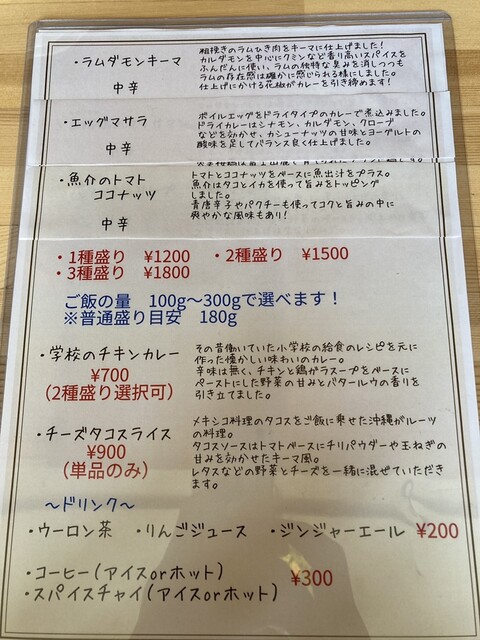 ・ラムダモンキーマ
中辛
粗挽きのラムひき肉をキーマに仕上げました!
カルダモンを中心にクミンなど香り高いスパイスを
ふんだんに使い、ラムの独特な臭みを消しつつも
ラムの存在感は確かに感じられる様にしました。
仕上げにかける花椒がカレーを引き締めます!
・エッグマサラ
中辛
ボイルエッグをドライタイプのカレーで煮込みました。
ドライカレーはシナモン、カルダモン、クローブ
などを効かせ、カシューナッツの甘味とヨーグルトの
酸味を足してバランス良く仕上げました。
・魚介のトマト
ココナッツ
中辛
トマトとココナッツをベースに魚出汁をプラス。
魚介はタコとイカを使って旨みをトッピング
しました。
青唐辛子やパクチーも使ってコクと旨みの中に
爽やかな風味もあり!
・1種盛り ¥1200 ・2種盛り ¥1500
・3種盛り ¥1800
ご飯の量 100g〜300gで選べます!
※普通盛り目安 180g
・学校のチキンカレー
¥700
(2種盛り選択可)
その昔働いていた小学校の給食のレシピを元に
作った懐かしい味わいのカレー。
辛味は無く、チキンと鶏がラスープをベースに
ペーストにした野菜の甘みとバタールウの香りを
引き立てました。
・チーズタコスライス
¥900
(単品のみ)
メキシコ料理のタコスをご飯に乗せた沖縄がルーツ
の料理。
タコスソースはトマトベースにチリパウダーや玉ねぎの
甘みを効かせたキーマ風。
レタスなどの野菜とチーズを一緒に混ぜていただき
ます。
〜ドリンク〜
・ウーロン茶 ・りんごジュース ・ジンジャーエール ¥200
・コーヒー(アイスorホット) ¥300
・スパイスチャイ(アイスorホット)